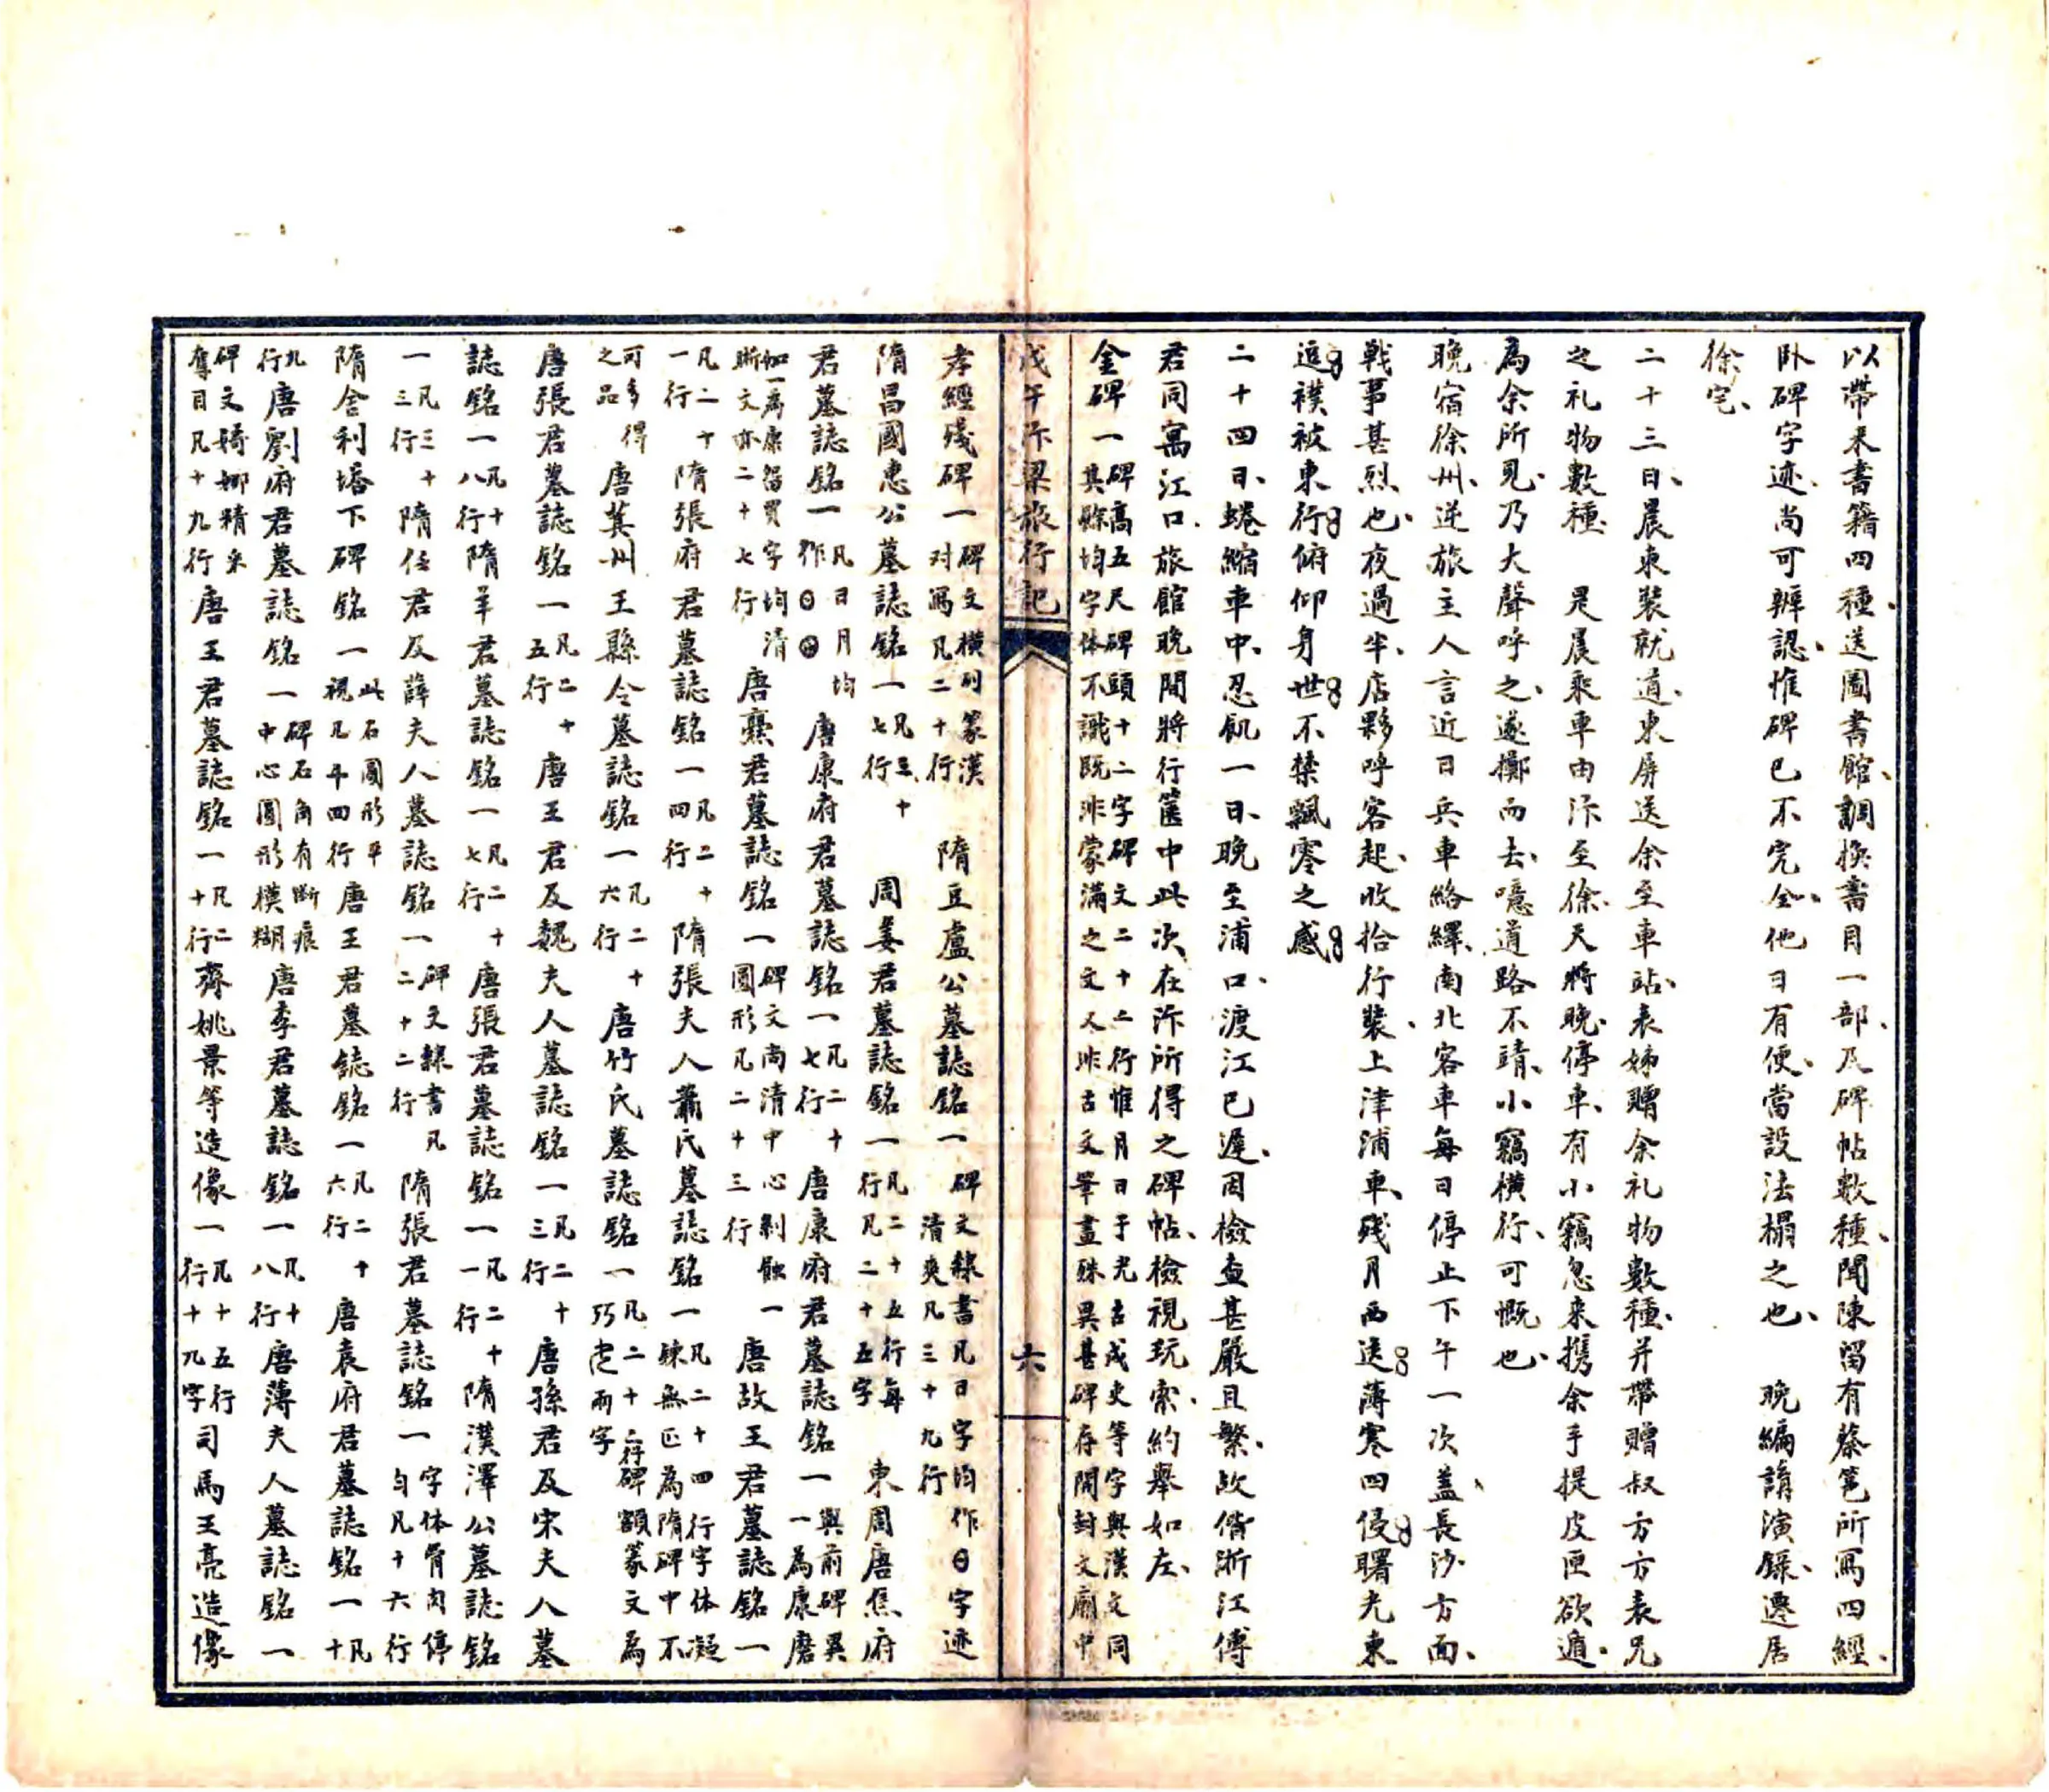 以帶来書籍四種、送圖書館、調換書目一部、及碑帖數種、聞陳留有蔡邕所寫四經、
卧碑字迹、尚可辨認、惟碑已不完全、他日有便、當設法榻之也、　晚編講演錄、遷居
徐宅、
二十三日、晨束裝就道、東屏送余至車站、表姊贈余礼物數種、并帶贈叔方方表兄
之礼物數種、　是晨乘車由汴至徐、天將晚、停車、有小竊忽来携余手提皮匣欲遁、
為余所見、乃大聲呼之、遂擲而去、噫道路不靖、小竊橫行、可慨也、
晚宿徐州、逆旅主人言近日兵車絡繹、南北客車每日停止下午一次、盖長沙方面、
戰事甚烈也、夜過半、店夥呼客起、收拾行裝、上津浦車、殘月西送、薄寒四侵、曙光東
進、襆被東行、俯仰身世、不禁飄零之感
二十四日、蜷縮車中、忍飢一日、晚至浦口、渡江已遲、因檢查甚嚴且繁、故偕浙江傅
君同寓江口旅館、晚間將行篋中此次在汴所得之碑帖、檢視玩索、約舉如左、
金碑一 碑高五尺碑頭十二字碑文二十二行惟月日于光古戍吏等字與漢文同
其餘均字体不識既非蒙滿之文又非古文筆畫殊異甚碑存開封文廟中
戊午汴梁旅行記
六
孝經殘碑一 碑文橫列篆漢對寫凡二十行　隋豆盧公墓誌銘一 碑文隸書凡日字均作日字迹清爽凡三十九行
隋昌國惠公墓誌銘一 凡三十七行　周姜君墓誌銘一 凡二十五行每行凡二十五字　東周唐焦府
君墓誌銘一 凡日月均作　唐康府君墓誌銘一 凡二十七行　唐康府君墓誌銘一 與前碑異一為康磨
伽一為康留買字均清晰文亦二十七行　唐爨君墓誌銘一 碑文尚清中心剝蝕一圓形凡二十三行　唐故王君墓誌銘一
凡二十一行　隋張府君墓誌銘一 凡二十四行　隋張夫人蕭氏墓誌銘一 凡二十四行字体凝鍊無匹為隋碑中不
可多得之品　唐萁州王縣令墓誌銘一 凡二十六行　唐竹氏墓誌銘一 凡二十二行碑額篆文為巧定兩字
唐張君墓誌銘一 凡二十五行　唐王君及魏夫人墓誌銘一 凡二十三行　唐孫君及宋夫人墓
誌銘一 凡十八行　隋羊君墓誌銘一 凡二十七行　唐張君墓誌銘一 凡二十一行　隋漢澤公墓誌銘
一 凡三十三行　隋任君及薛夫人墓誌銘一 碑文隸書凡二十二行　隋張君墓誌銘一 字体骨肉停勻凡十六行
隋舍利墖下碑銘一 此石圓形平視凡斗四行　唐王君墓誌銘一 凡二十六行　唐袁府君墓誌銘一 凡十
九行　唐劉府君墓誌銘一 碑石角有斷痕中心圓形模糊　唐李君墓誌銘一 凡十八行　唐薄夫人墓誌銘一
碑文婍娜精采奪目凡十九行　唐王君墓誌銘一 凡二十行　齊姚景等造像一 凡十五行行十九字　司馬王亮造像